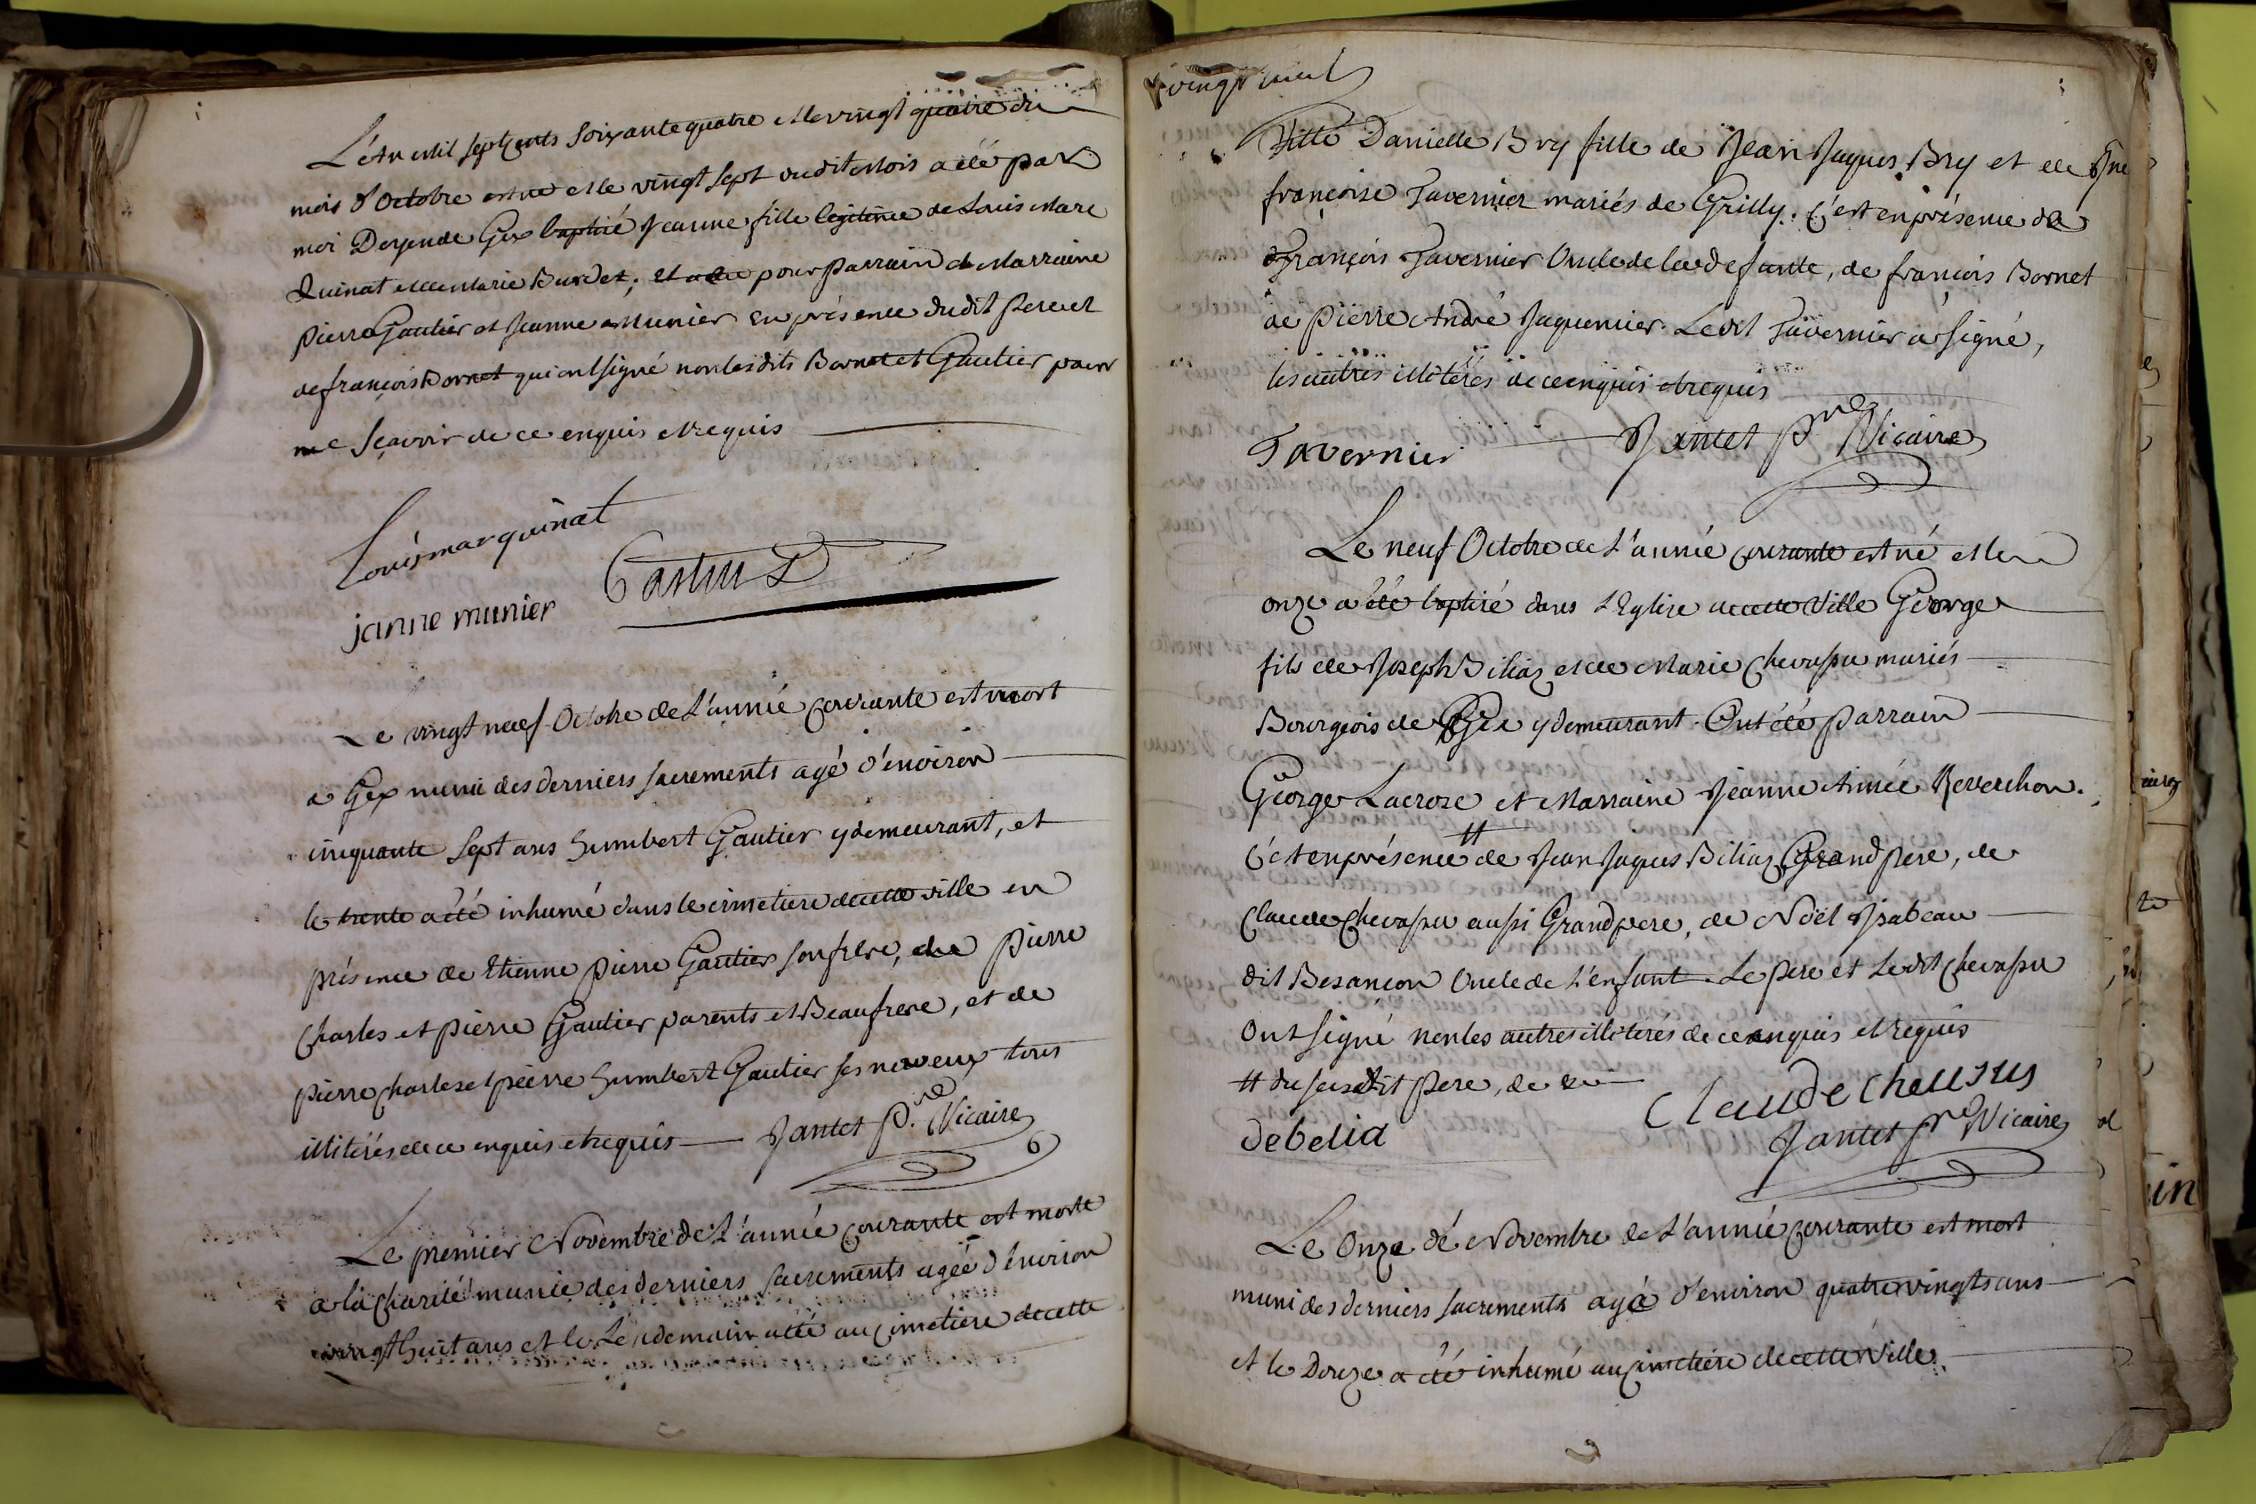 L'An Mil septcents soixante quatre et le vingt quatre du
mois d'Octobre est né et le vingt sept dudit Mois a été par
moi Doyen de Gex baptisé Jeanne fille légitime de Louis Marc
Quinat et de Marie Burdet; et a eu pour Parrain et Marraine
Pierre Gautier et Jeanne Munier en présence dudit Pere et
de françois Bornet qui ont signé non lesdits Bornet et Gautier pour
ne sçavoir de ce enquis et requis
Louis marquinat
janne munier
Le vingt neuf Octobre de L'année Courante est mort
a Gex muni des derniers sacrements agé d'environ
cinquante sept ans humbert Gautier y demeurant, et
le trente a été inhumé dans le cimetiere de cette ville en
présence de Etienne Pierre Gautier son frere, de Pierre
Charles et Pierre Gautier parents et Beaufrere, et de
Pierre Charles et pierre humbert Gautier ses neveux tous
illiterés de ce enquis et requis Jantet P.re Vicaire
Le premier Novembre de L'année Courante est morte
a la Charité munie des derniers sacrements agée d'environ
vingt huit ans et le Lendemain a été au Cimetiere de cette
vingt neuf
Ville Danielle Bry fille de Jean Jaques Bry et de
françoise Tavernier mariés de Grilly. C'est en présence de
François Tavernier Oncle de la defunte, de francois Bornet
de Pierre André Jaquemier. Ledit Tavernier a signé,
les autres illiterés de ce enquis et requis
Tavernier Jantet P.re Vicaire
Le neuf Octobre de L'année Courante est né et le
onze a été baptisé dans L'Eglise de cette Ville George
fils de Joseph Biliaz et de Marie Chevassu mariés
Bourgeois de Gex y demeurant. Ont été parrain
George Lacroze et Marraine Jeanne Aimée Reverchon.
C'est en présence # de Jean Jaques Biliaz Grand Pere, de
Claude Chevassu aussi Grand pere, de Noël Isabeau
dit Besançon Oncle de L'enfant. Le Pere et Ledit Chevassu
Ont signé non les autres illiterés de ce enquis et requis
# du susdit Pere, de
debelia Claude Cheussus
Jantet P.re Vicaire
Le Onze de Novembre de L'année Courante est mort
muni des derniers sacrements agé d'environ quatre vingts ans
et le Douze a été inhumé au Cimetiere de cette Ville